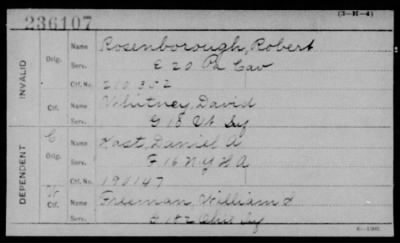 (3-H-4)
236107
INVALID
Orig. Name Rosenborough, Robert
Serv. E 20 Pa Cav
Ctf. No. 210,352
Ctf. Name Whitney, David
Serv. G 18 Vt Inf
DEPENDENT
C
Orig. Name Kast, Daniel A
Serv. F 16 N.Y H A
Ctf. No. 190147
W
Ctf. Name Freeman, William
Serv. 182 Ohio Inf